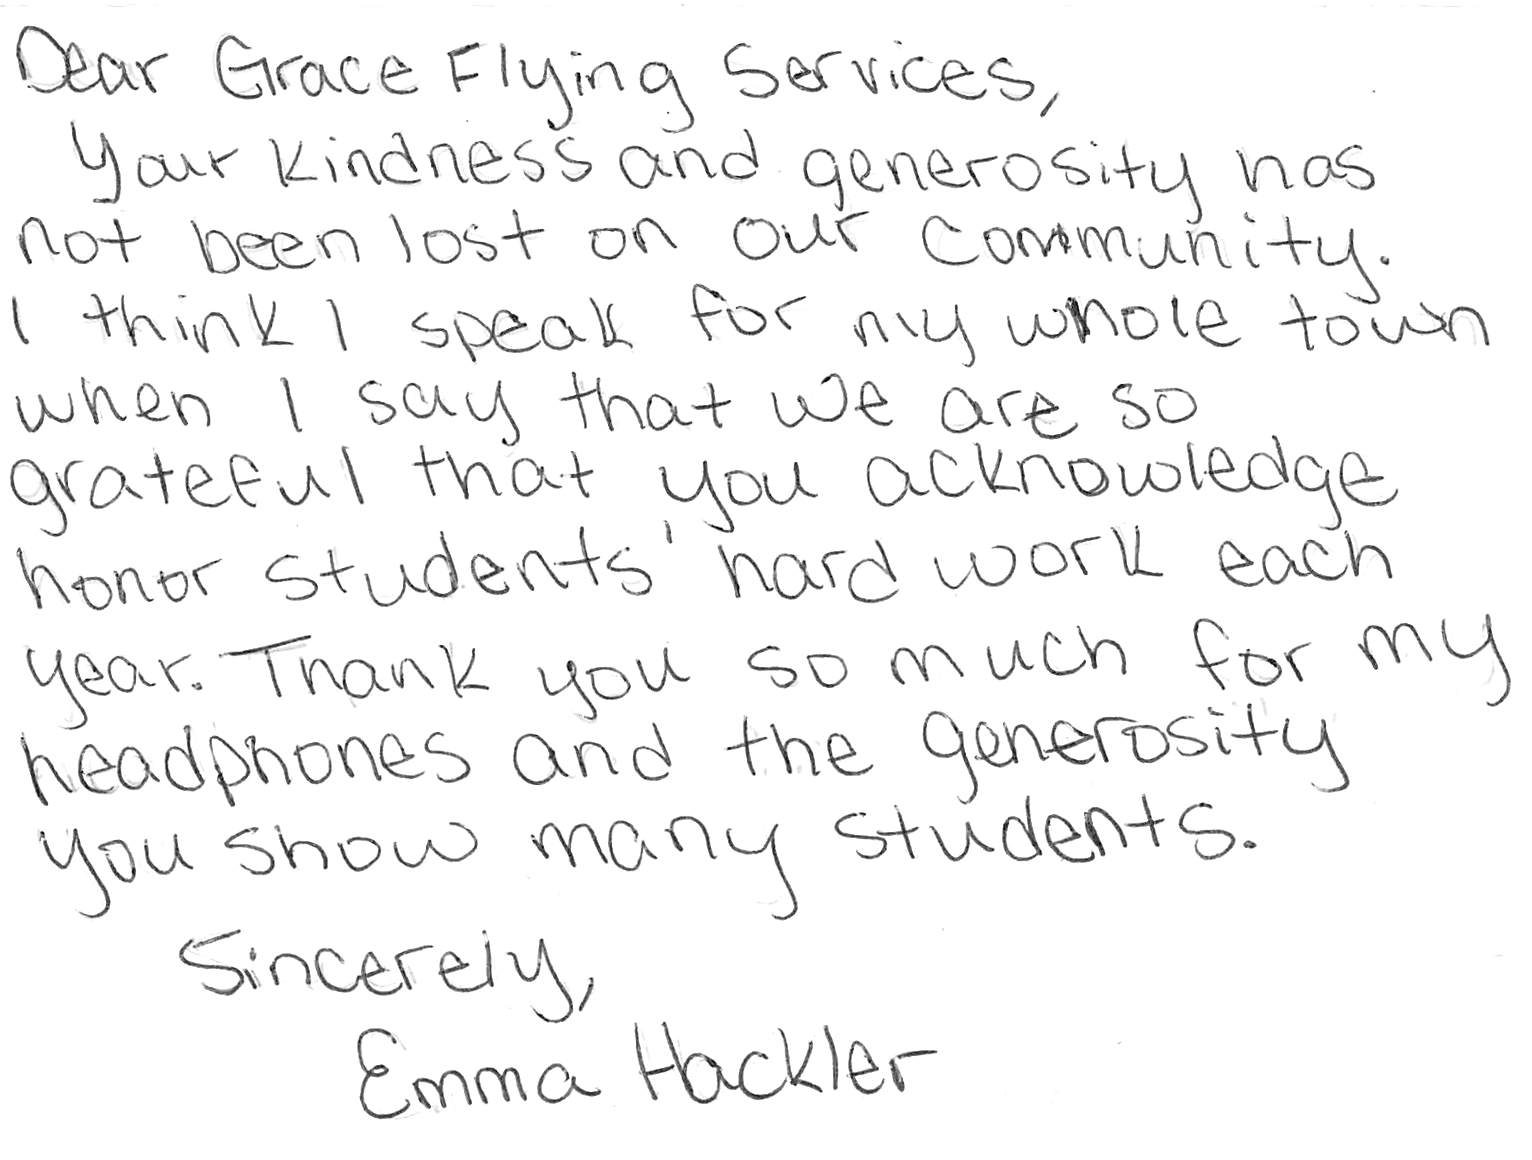 Dear Grace Flying Services,
Your kindness and generosity has
not been lost on our community.
I think I speak for my whole town
when I say that we are so
grateful that you acknowledge
honor students' hard work each
year. Thank you so much for my
headphones and the generosity
you show many students.
Sincerely,
Emma Hackler